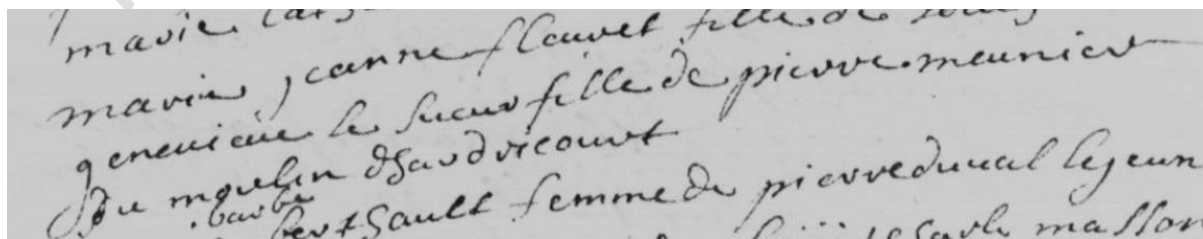 marie
marie jeanne flouvet fille de
geneuieue le sueur fille de pierre meunier
du moulin dhardricourt
barbe
berthault femme de pierre duual le jeun
charle masson